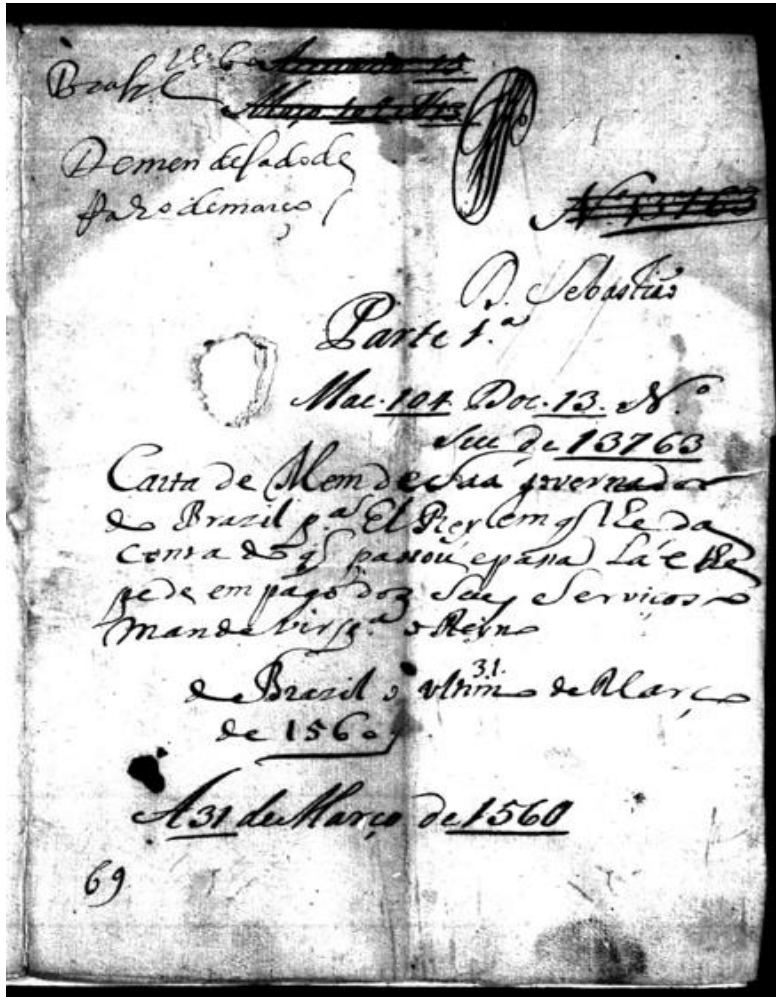 Brasil 1560
De men de saa de
de março
D. Sebastião
Parte 1.ª
Mac. 104 Doc. 13. N.º
Suc de 13763
Carta de Mem de Saa governador
do Brazil p.ª El Rey em q̃ lhe da
conta do q̃ passou e passa Lá e lhe
pede em pago dos Seus Serviços o
mande vir p.ª o Reyno
do Brazil o ultimo de Março
31.
de 1560
A 31 de Março de 1560
69